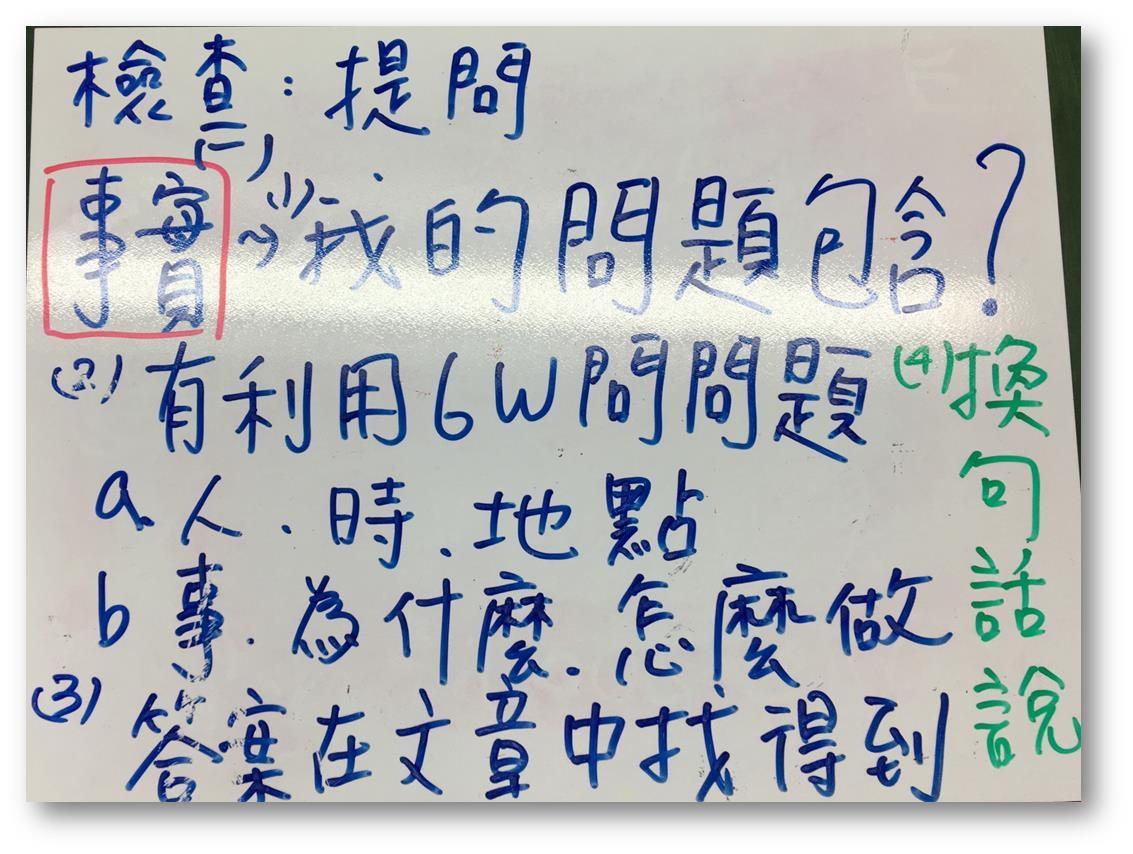 檢查：提問
(一)
事實 (1) 我的問題包含？
(2) 有利用6W問問題
a. 人．時．地點
b 事．為什麼．怎麼做
(3) 答案在文章中找得到
(4) 換句話說